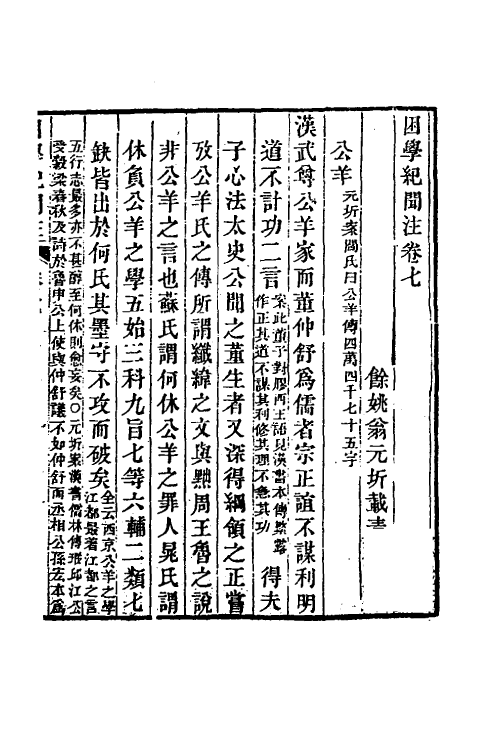 困學紀聞注卷七
餘姚翁元圻載青
公羊 元圻案閻氏曰公羊傳四萬四千七十五字
漢武尊公羊家而董仲舒爲儒者宗正誼不謀利明
道不計功二言 案此董子對膠西王語見漢書本傳繁露作正其道不謀其利修其理不急其功 得夫
子心法太史公聞之董生者又深得綱領之正嘗
攷公羊氏之傳所謂讖緯之文與黜周王魯之說
非公羊之言也蘇氏謂何休公羊之罪人晁氏謂
休負公羊之學五始三科九旨七等六輔二類七
缺皆出於何氏其墨守不攻而破矣 全云西京公羊之學江都最著江都之言
五行志最多亦不甚醇至何休則愈妄矣○元圻案漢書儒林傳瑕邱江公
受穀梁春秋及詩於魯申公上使與仲舒議不如仲舒而丞相公孫宏本爲